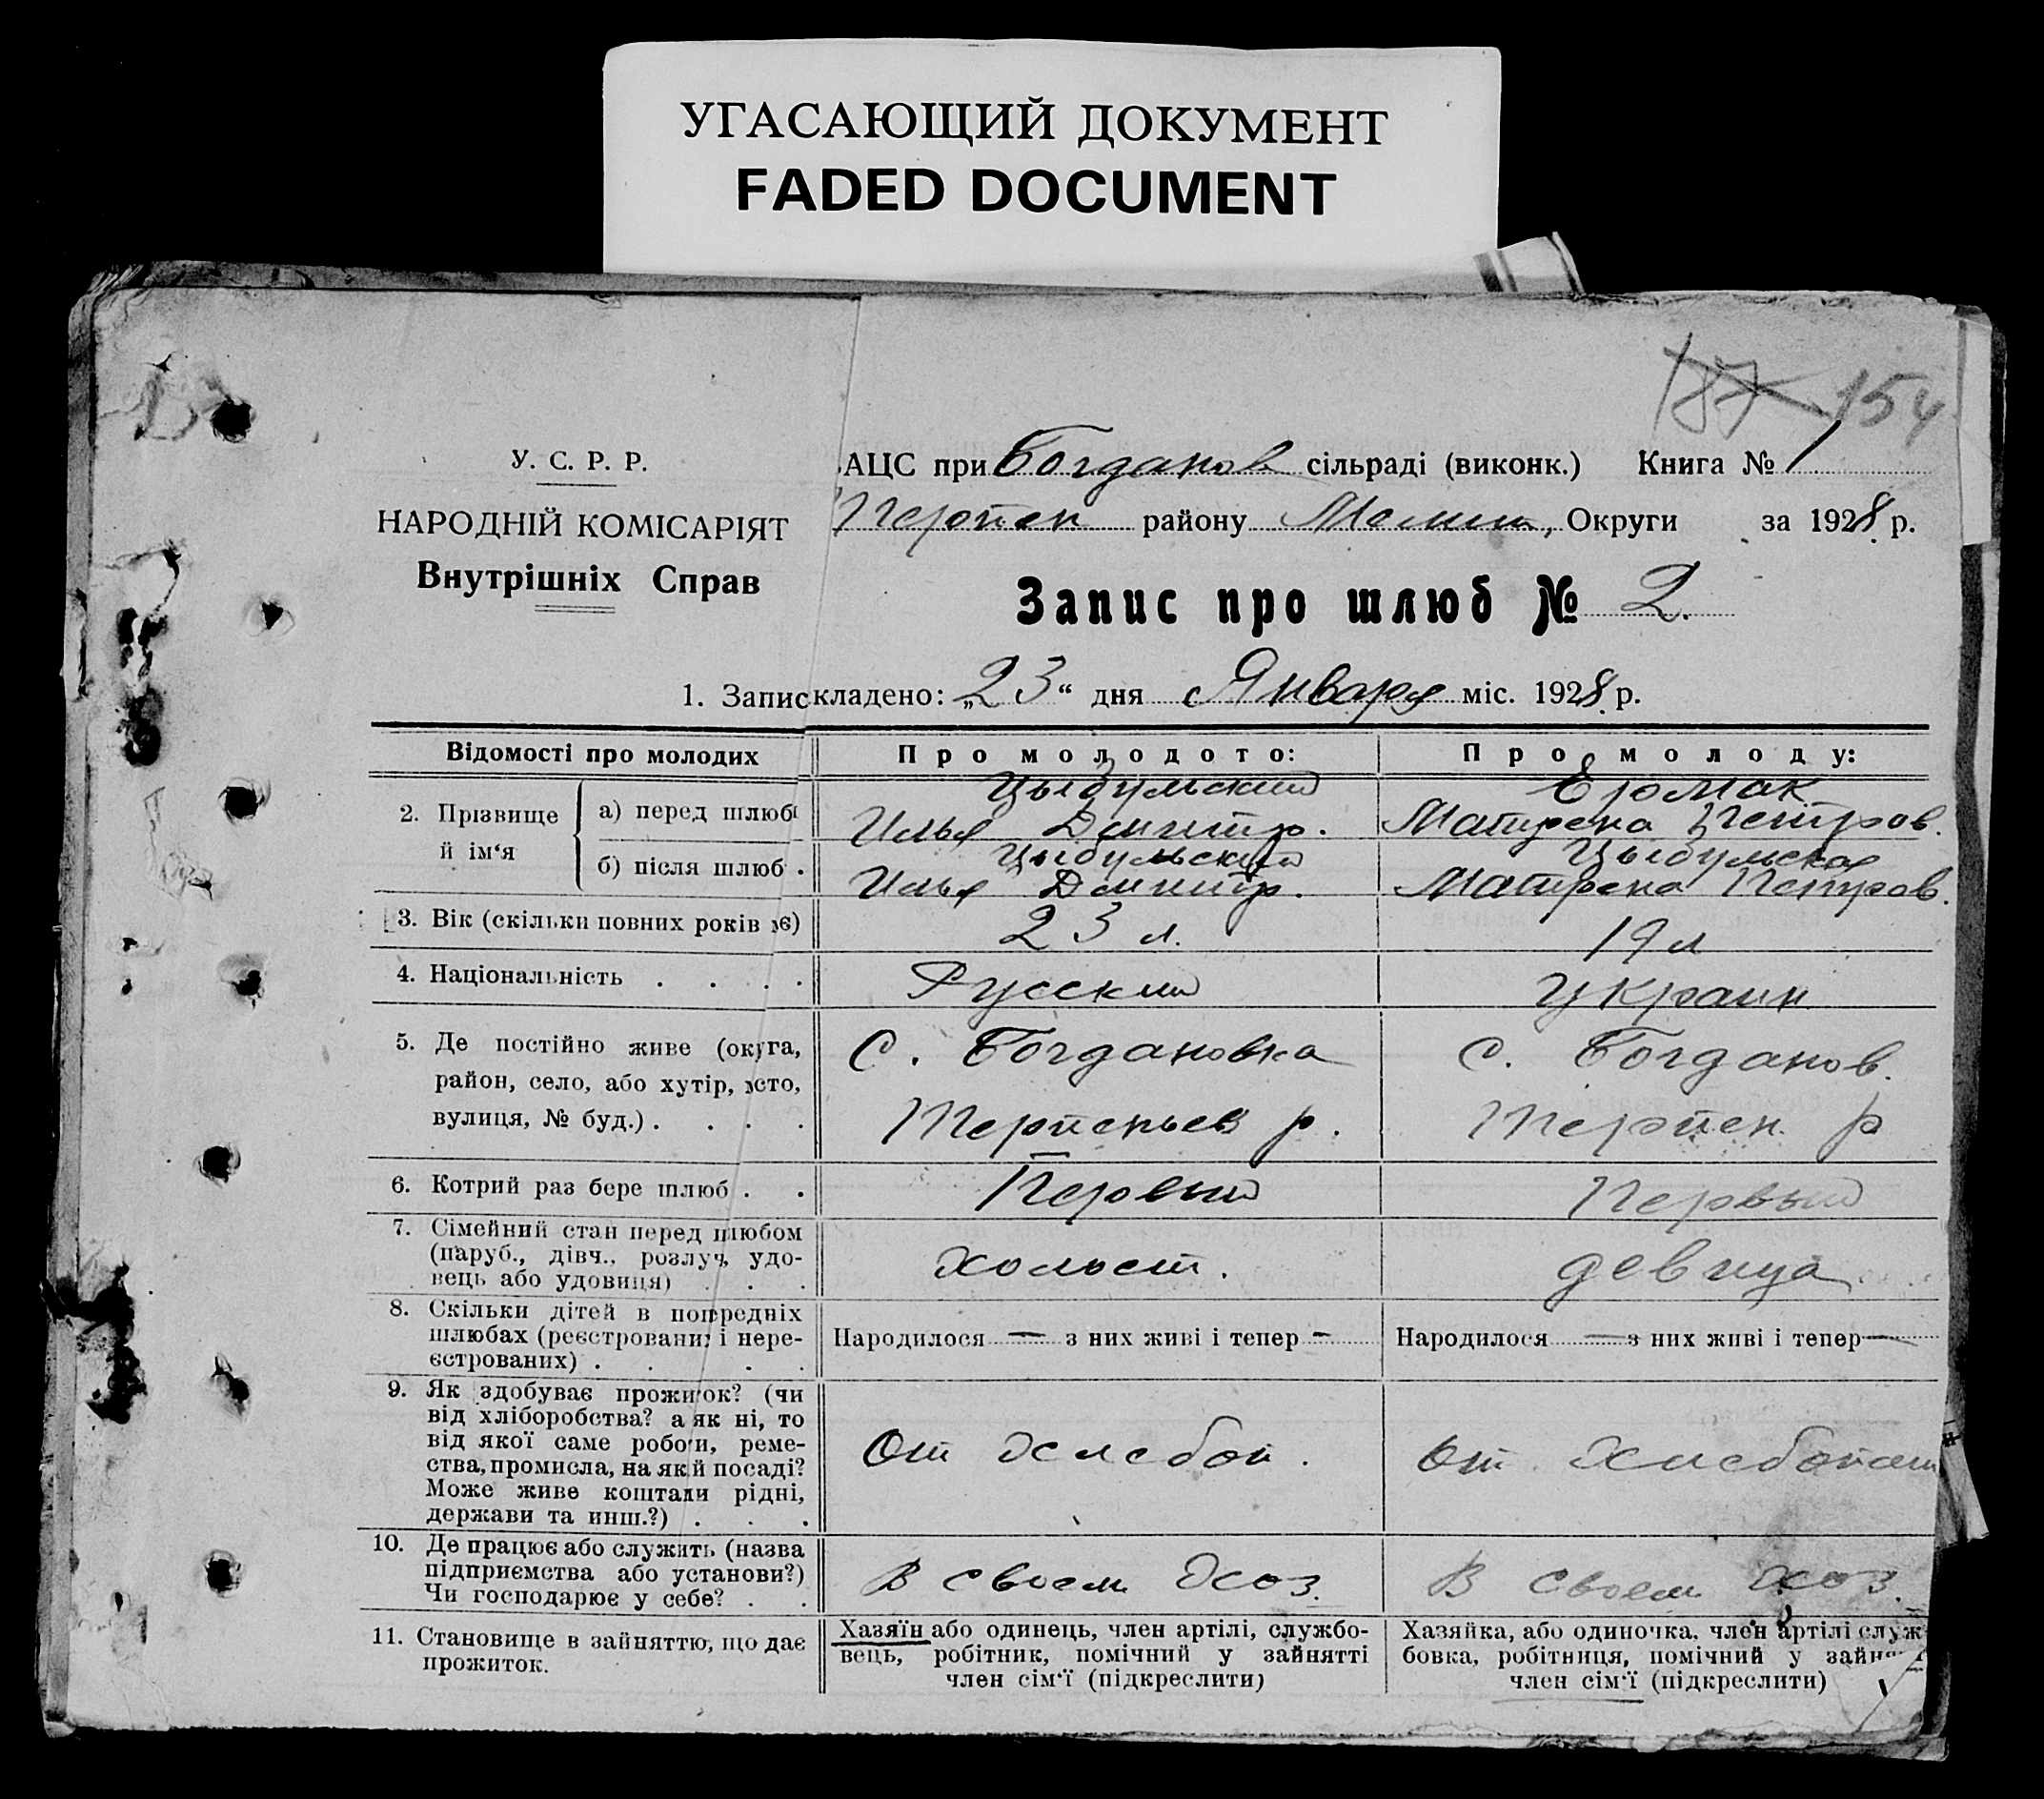 УГАСАЮЩИЙ ДОКУМЕНТ
FADED DOCUMENT
187 154
У. С. Р. Р.
НАРОДНІЙ КОМІСАРІЯТ
Внутрішніх Справ
АЦС при Богданов сільраді (виконк.) Книга № 1
Терпен району Мелит, Округи за 1928 р.
Запис про шлюб № 2.
1. Запис кладено: „23“ дня Января міс. 1928 р.
Відомості про молодих
Про молодого:
Про молоду:
2. Прізвище й ім‘я
а) перед шлюб
Цыбульский
Илья Дмитр.
Ермак
Матрена Петров.
б) після шлюб .
Цыбульский
Илья Дмитр.
Цыбульская
Матрена Петров.
3. Вік (скільки повних років є)
23 л.
19 л
4. Національність . . . .
Русский
Украин
5. Де постійно живе (округа,
район, село, або хутір, сто,
вулиця, № буд.) . . . .
С. Богдановка
Терпеньев р.
С. Богданов.
Терпен р
6. Котрий раз бере шлюб . .
Первый
Первый
7. Сімейний стан перед шлюбом
(паруб., дівч., розлуч, удо-
вець або удовиця) . . .
холост.
девица
8. Скільки дітей в попередніх
шлюбах (реєстрованих і нере-
єстрованих) . . . .
Народилося — з них живі і тепер -
Народилося — з них живі і тепер —
9. Як здобуває прожиток? (чи
від хліборобства? а як ні, то
від якої саме роботи, реме-
ства, промисла, на якій посаді?
Може живе коштали рідні,
держави та инш.?) . . .
От хлебоп.
От Хлебопаш
10. Де працює або служить (назва
підприємства або установи?)
Чи господарює у себе? . .
В своем хоз.
В своем хоз.
11. Становище в зайняттю, що дає
прожиток.
Хазяїн або одинець, член артілі, службо-
вець, робітник, помічний у зайнятті
член сім‘ї (підкреслити)
Хазяйка, або одиночка, член артілі служ
бовка, робітниця, помічний у зайн
член сім‘ї (підкреслити)